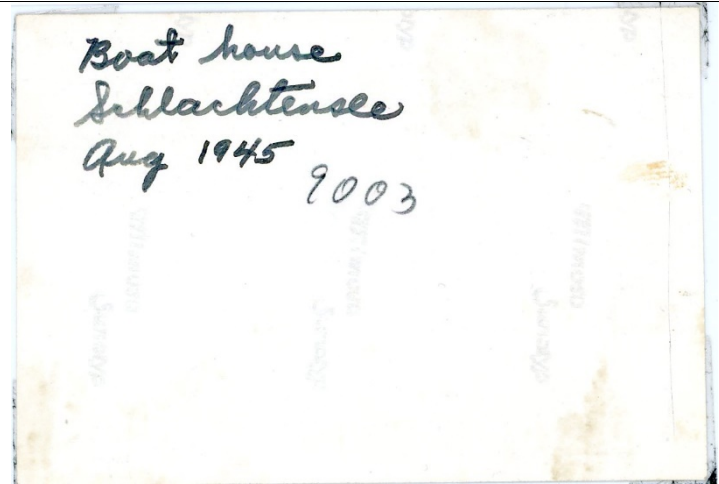 Boat house
Schlachtensee
Aug 1945
9003